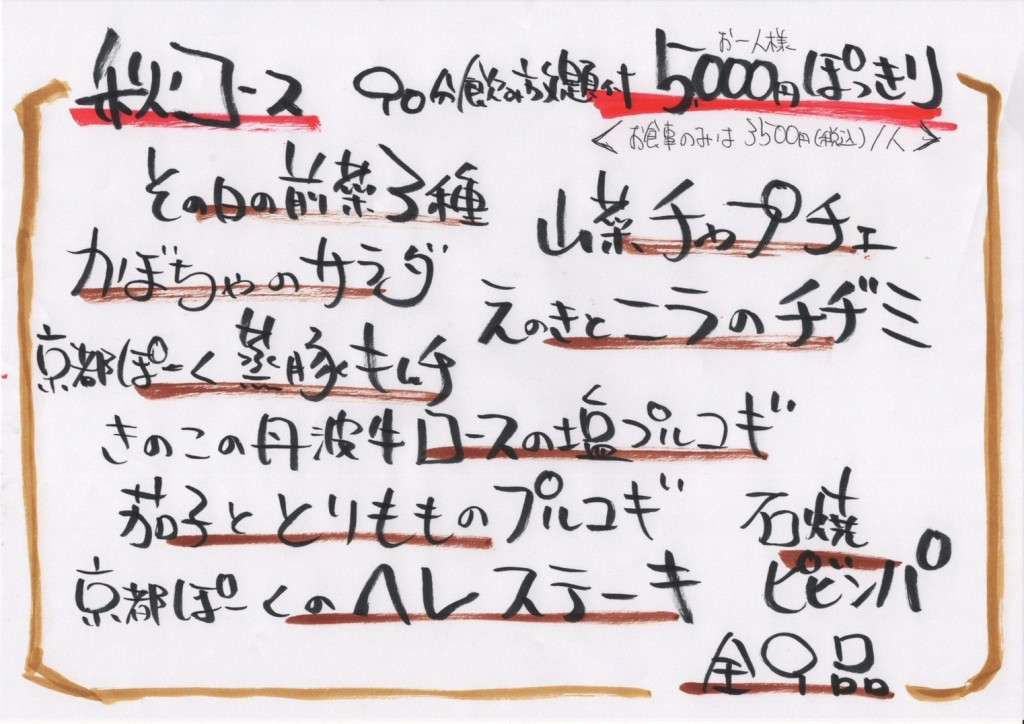 秋コース 90分飲み放題付 お一人様 5,000円ぽっきり
＜お食事のみは3500円(税込)/人＞
その日の前菜3種
山菜チャプチェ
かぼちゃのサラダ
えのきとニラのチヂミ
京都ぽーく蒸豚キムチ
きのこの丹波牛ロースの塩プルコギ
茄子ととりもものプルコギ
石焼
ピビンパ
京都ぽーくのヘレステーキ
全9品